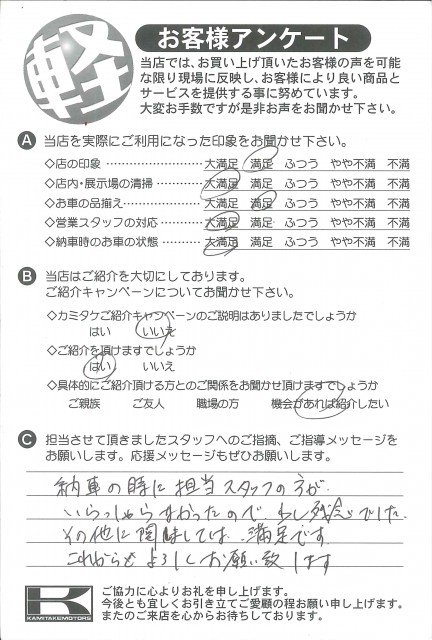 軽
お客様アンケート
当店では、お買い上げ頂いたお客様の声を可能
な限り現場に反映し、お客様により良い商品と
サービスを提供する事に努めています。
大変お手数ですが是非お声をお聞かせ下さい。
A 当店を実際にご利用になった印象をお聞かせ下さい。
◇店の印象 ………………… 大満足 満足 ふつう やや不満 不満
◇店内・展示場の清掃………… 大満足 満足 ふつう やや不満 不満
◇お車の品揃え……………… 大満足 満足 ふつう やや不満 不満
◇営業スタッフの対応………… 大満足 満足 ふつう やや不満 不満
◇納車時のお車の状態………… 大満足 満足 ふつう やや不満 不満
B 当店はご紹介を大切にしております。
ご紹介キャンペーンについてお聞かせ下さい。
◇カミタケご紹介キャンペーンのご説明はありましたでしょうか
はい いいえ
◇ご紹介を頂けますでしょうか
はい いいえ
◇具体的にご紹介頂ける方とのご関係をお聞かせ頂けますでしょうか
ご親族 ご友人 職場の方 機会があれば紹介したい
C 担当させて頂きましたスタッフへのご指摘、ご指導メッセージを
お願いします。応援メッセージもぜひお願いします。
納車の時に担当スタッフの方が
いらっしゃらなかったので少し残念でした。
その他に関しては、満足です
これからもよろしくお願い致します
K
KAMITAKEMOTORS
ご協力に心よりお礼を申し上げます。
今後とも宜しくお引き立てご愛顧の程お願い申し上げます。
またのご来店を心からお待ちしております。